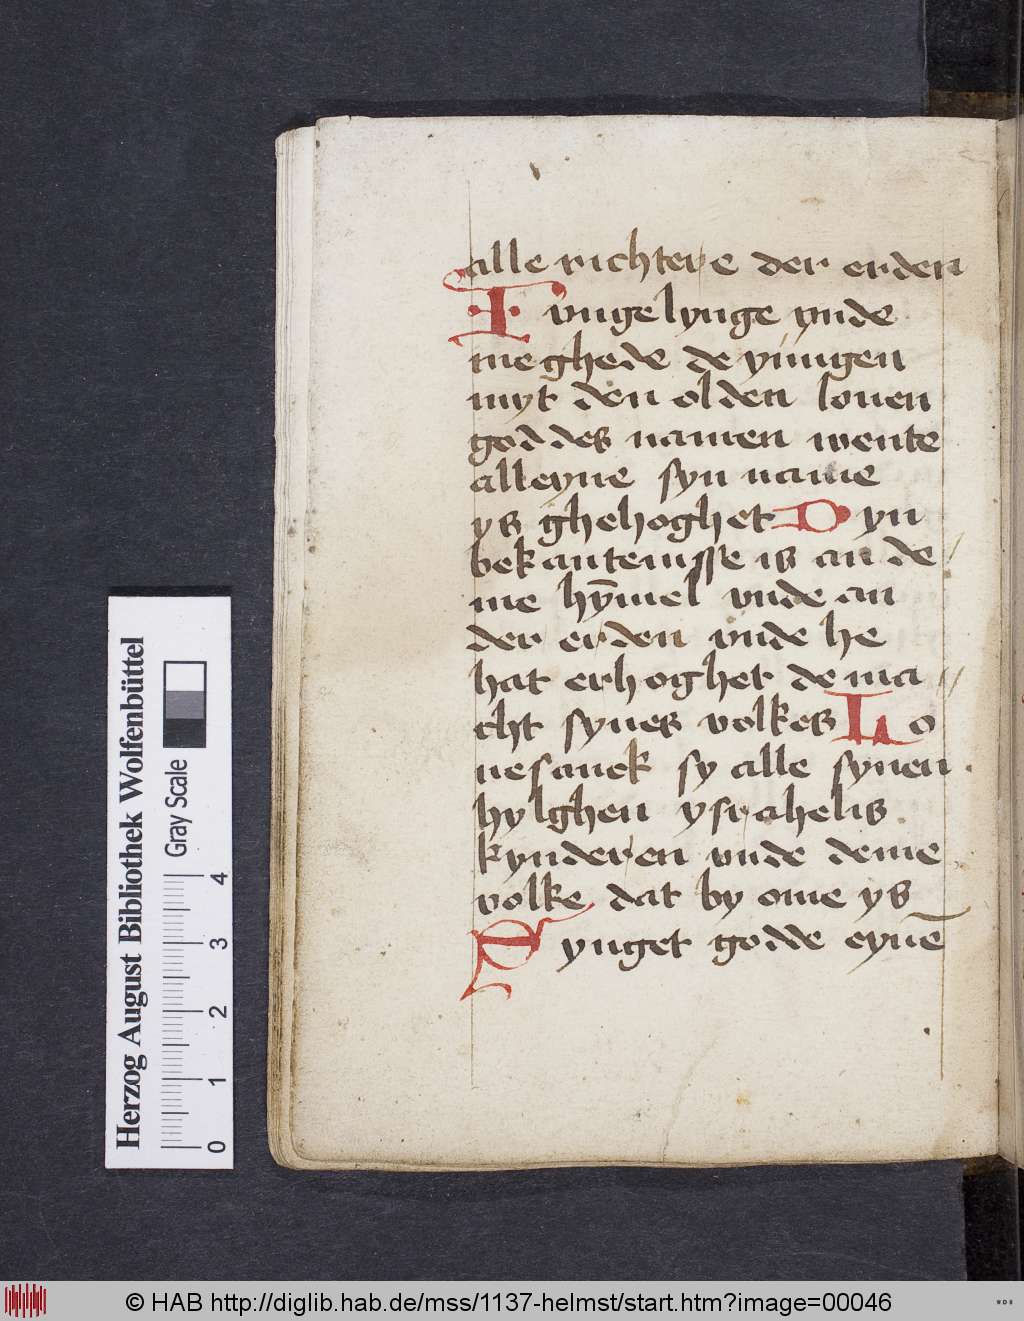 alle richtere der erden
I unngelynge vnde
meghede de yungen
myt den olden louen
goddes namen wente
alleyne syn name
ys ghehoghet D yn
bekantenisse is an de
me hȳmel vnde an
der erden vnde he
hat erhoghet de ma
cht synes volkes Lo
uesanck sy alle synen
hylghen ysrahelis
kynderen vnde deme
volke dat by ome ys
S ynget godde eynē
Herzog August Bibliothek Wolfenbüttel
Gray Scale
0 1 2 3 4
© HAB http://diglib.hab.de/mss/1137-helmst/start.htm?image=00046